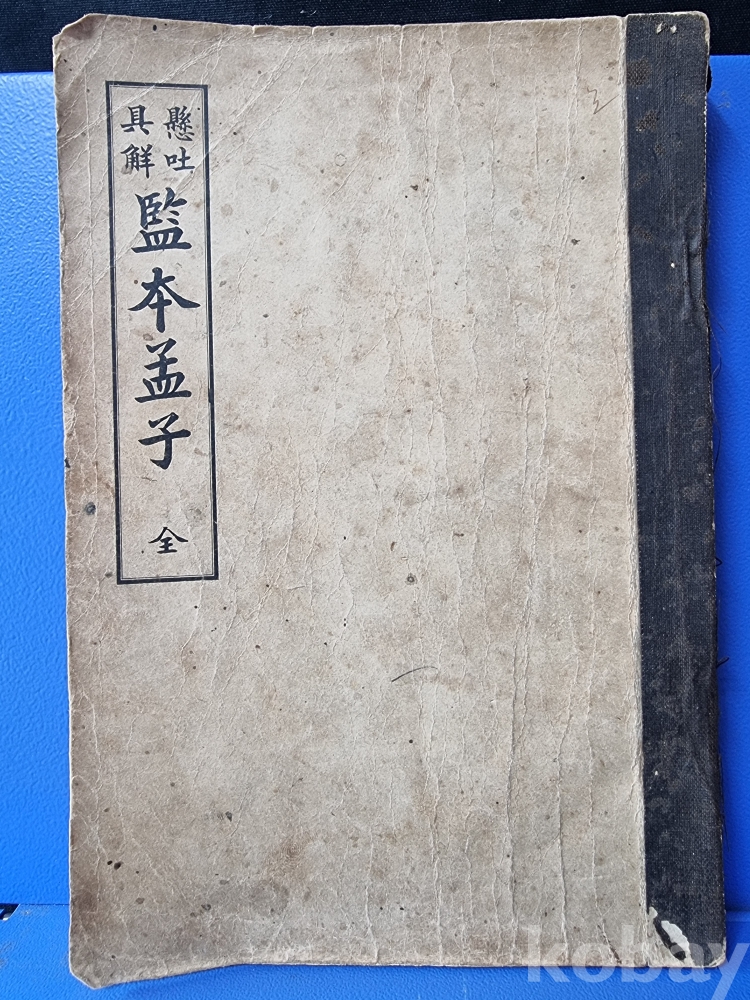 懸吐
具解
監本孟子 全
kobay